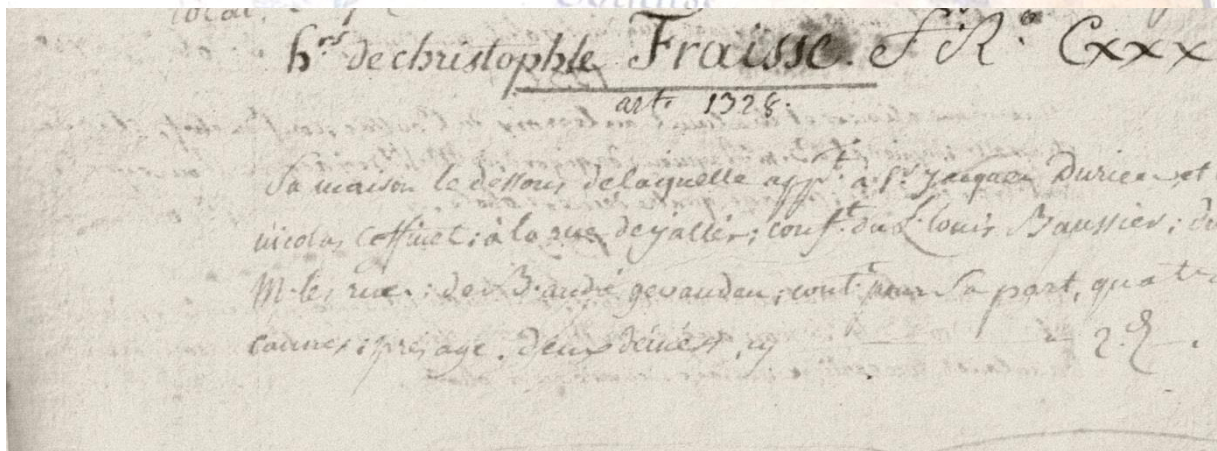 h.rs de christophle Fraisse. F. R.o Cxxx
art. 1328.
Sa maison le dessous de laquelle app.t a S.r Jacques Durieu et
nicolas Coffinet; à la rue de ; conf.t du L. Louis Baussier; du
M. les rues; de B. andré gevauden; cont.t pour Sa part, quatre
cannes; presage. deux deniers, cy 2 d.